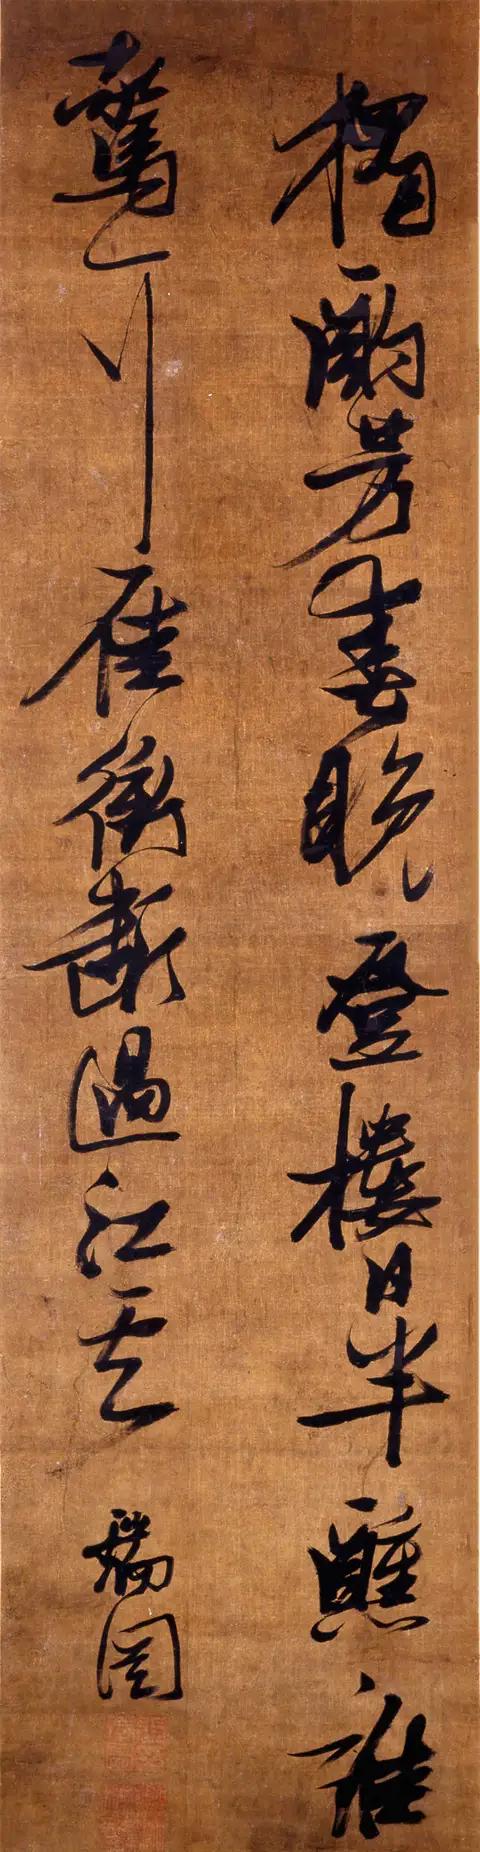 獨酌芳春登樓日半醺誰
驚一行雁衝斷過江雲
瑞圖